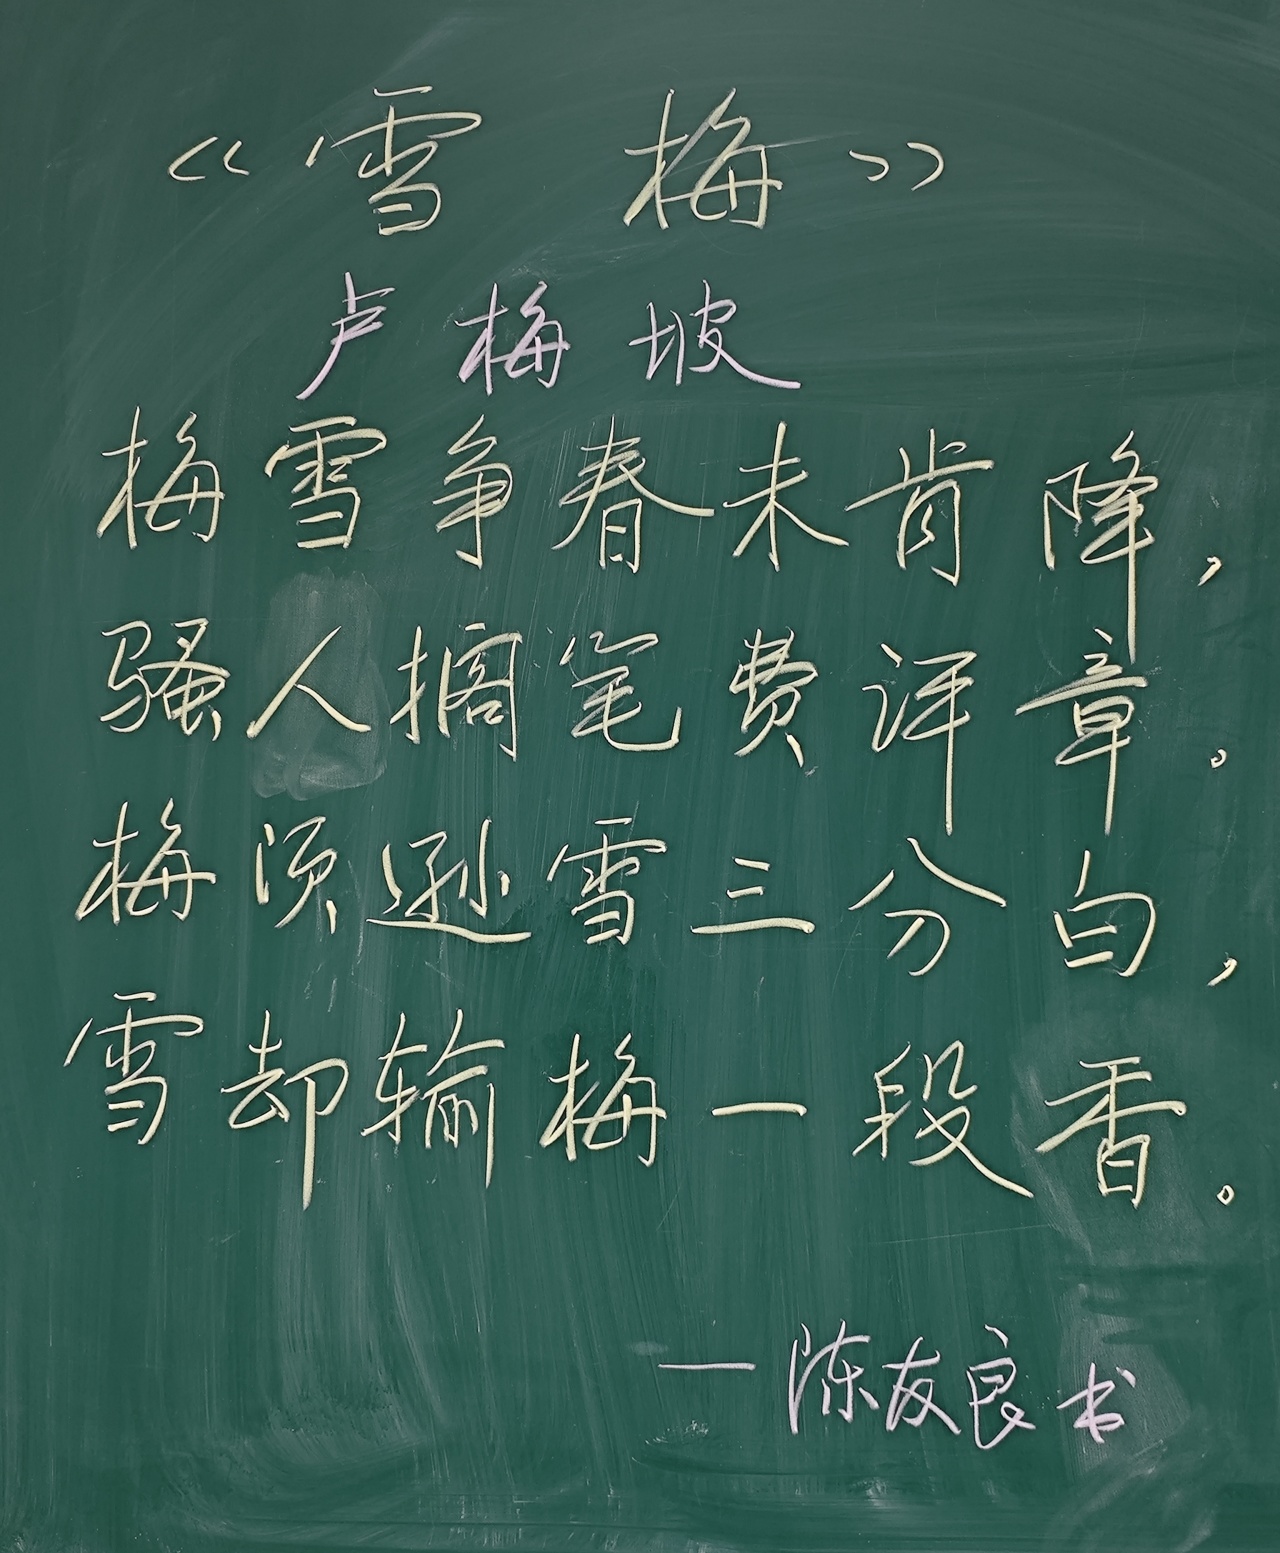 《雪梅》
卢梅坡
梅雪争春未肯降，
骚人搁笔费评章。
梅须逊雪三分白，
雪却输梅一段香。
—陈友良书